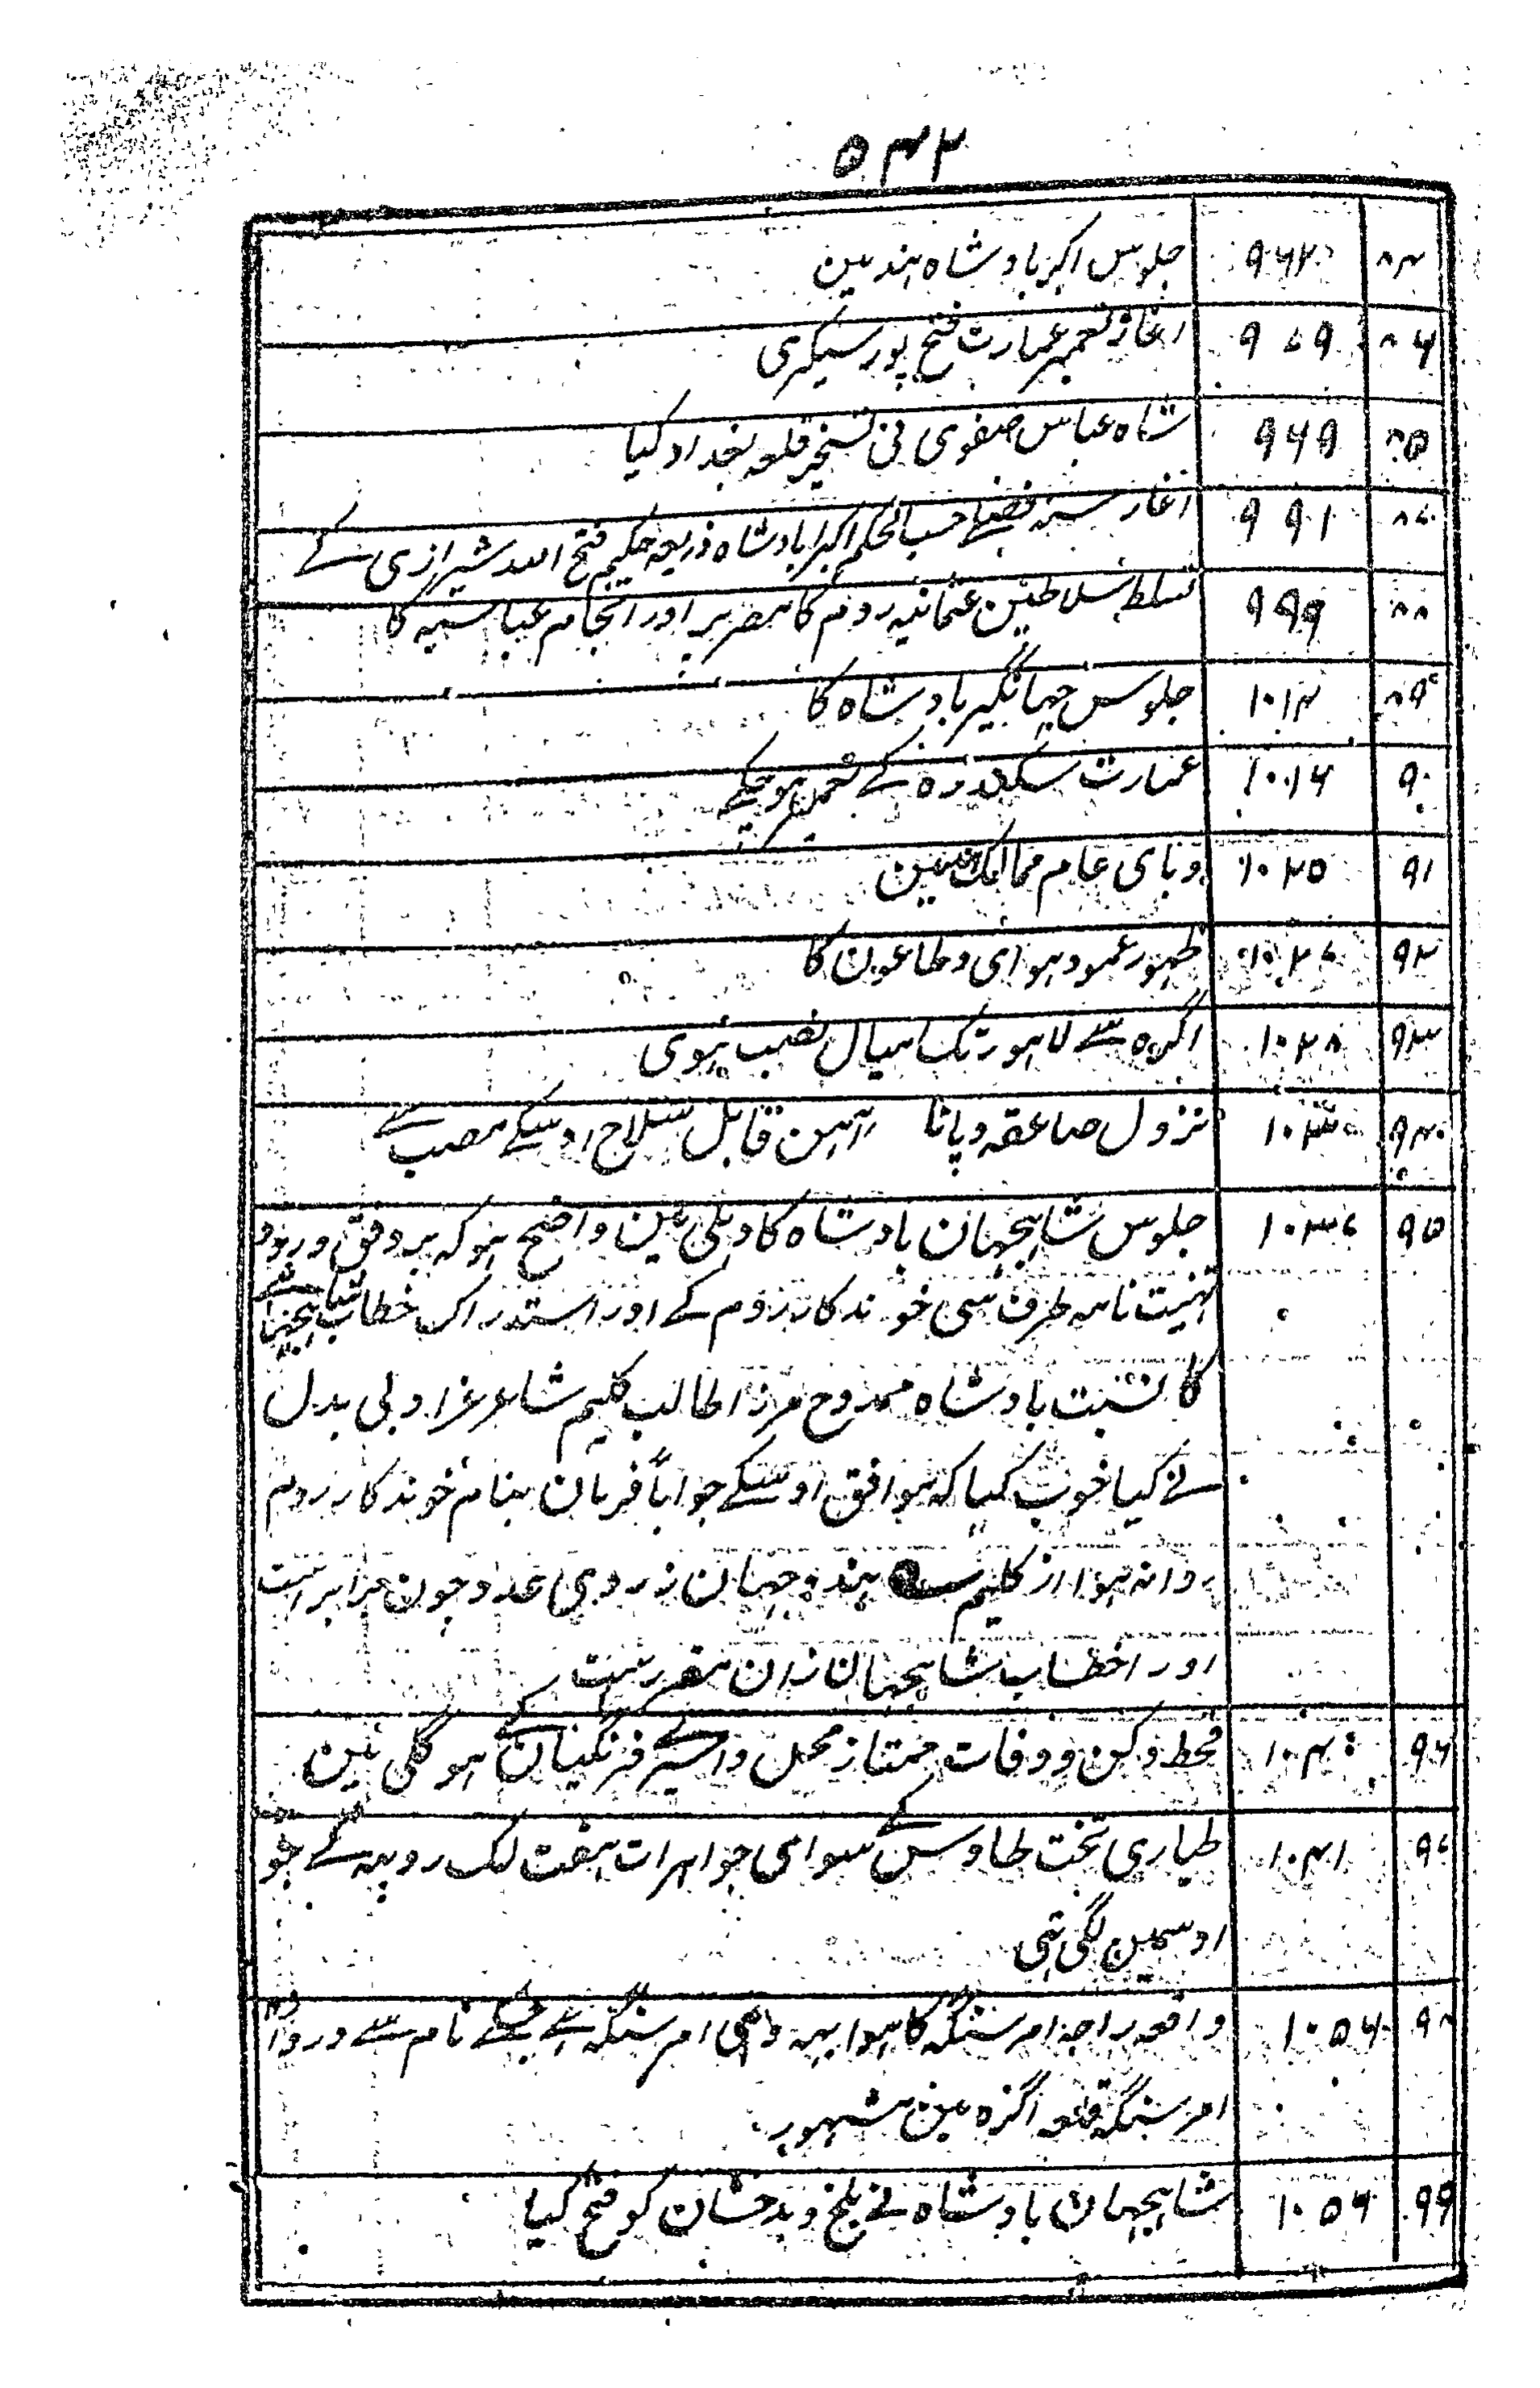 ۵۴۲
۸۴ ۹۶۲ جلوس اکبر بادشاہ ہند مین
۸۶ ۹۷۹ اغاز تعمیر عمارت فتح پور سیکری
۸۵ ۹۷۹ شاہ عباس صفوی نی تسخیر قلعہ بغداد کیا
۸۷ ۹۹۱ اغاز سنہ فصلے حسب الحکم اکبر بادشاہ ذریعہ حکیم فتح اللہ شیرازی کے
۸۸ ۹۹۹ تسلط سلاطین عثمانیہ روم کا مصر پر اور انجام عباسیہ کا
۸۹ ۱۰۱۴ جلوس جہانگیر بادشاہ کا
۹۰ ۱۰۱۶ عمارت سکندرہ کے تعمیر ہو چکے
۹۱ ۱۰۲۵ وبای عام ممالک مین
۹۲ ۱۰۲۷ ظہور عمود ہوای و طاعون کا
۹۳ ۱۰۲۸ اگرہ سے لاہور تک امیال نصب ہوی
۹۴ نزول صاعقہ و پانا آہن قابل سلاح اوسکے مصب سے
۹۵ ۱۰۳۷ جلوس شاہجہان بادشاہ کا دہلی مین واضح ہو کہ بر وقق ورود
تہنیت نامہ طرف سی خوندکار روم کے اور استدراک خطاب شاہجہانی
کا نسبت بادشاہ ممدوح مرزا طالب کلیم شاعر غرا و بی بدل
نے کیا خوب کہا کہ موافق اوسکے جواباً فرمان بنام خوندکار روم
روانہ ہوا از کلیم ہند و جہان ز روی عدد چون برابر است
اور اخطاب شاہجہان زان مقرر است
۹۶ ۱۰۴۰ قحط دکن و وفات ممتاز محل و اسیری فرنگیان کے ہوگلی مین
۹۷ ۱۰۴۱ طیاری تخت طاوس کے سوای جواہرات ہفت لک روپیہ کے جو
اوسمین لگی تہی
۹۸ ۱۰۵۴ واقعہ راجہ امر سنگہ کا ہوا یہہ وہی امر سنگہ ہے جسکے نام سے دروازہ
امر سنگہ قلعہ اگرہ مین مشہور
۹۹ ۱۰۵۶ شاہجہان بادشاہ نے بلخ و بدخشان کو فتح کیا